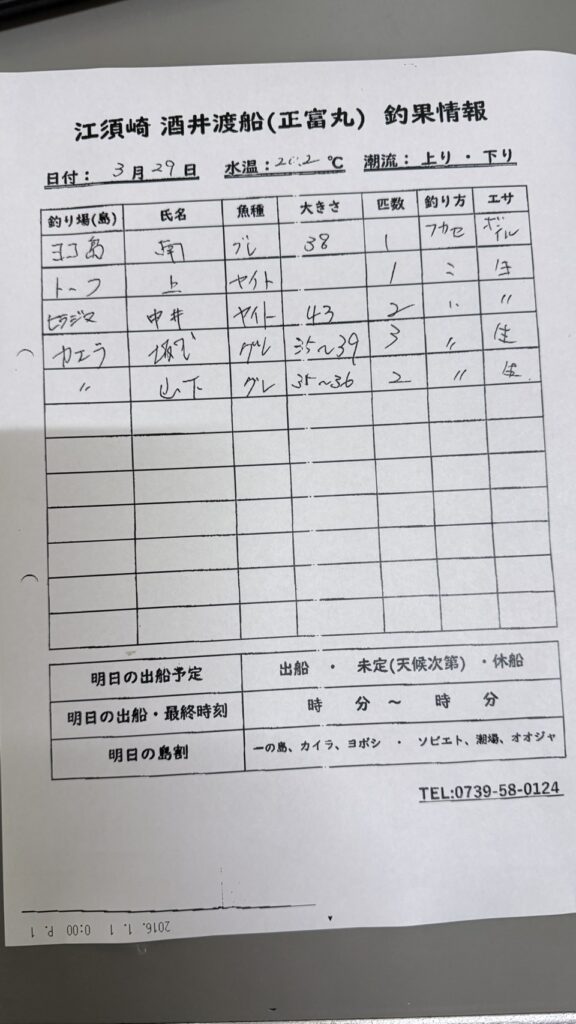 江須崎 酒井渡船(正富丸) 釣果情報
日付： 3月29日 水温：20.2 ℃ 潮流：上り・下り
釣り場(島) 氏名 魚種 大きさ 匹数 釣り方 エサ
ヨコ島 南 グレ 38 1 フカセ ボイル
トーフ 上 ヤイト 1 〃
ヒラジマ 中井 ヤイト 43 2 〃 〃
カエラ グレ 35～39 3 〃 生
〃 山下 グレ 35～36 2 〃 生
明日の出船予定 出船 ・ 未定(天候次第) ・休船
明日の出船・最終時刻 時 分 ～ 時 分
明日の島割 一の島、カイラ、ヨボシ ・ ソビエト、潮場、オオジャ
TEL:0739-58-0124
2016. 1. 1 0:00 P. 1